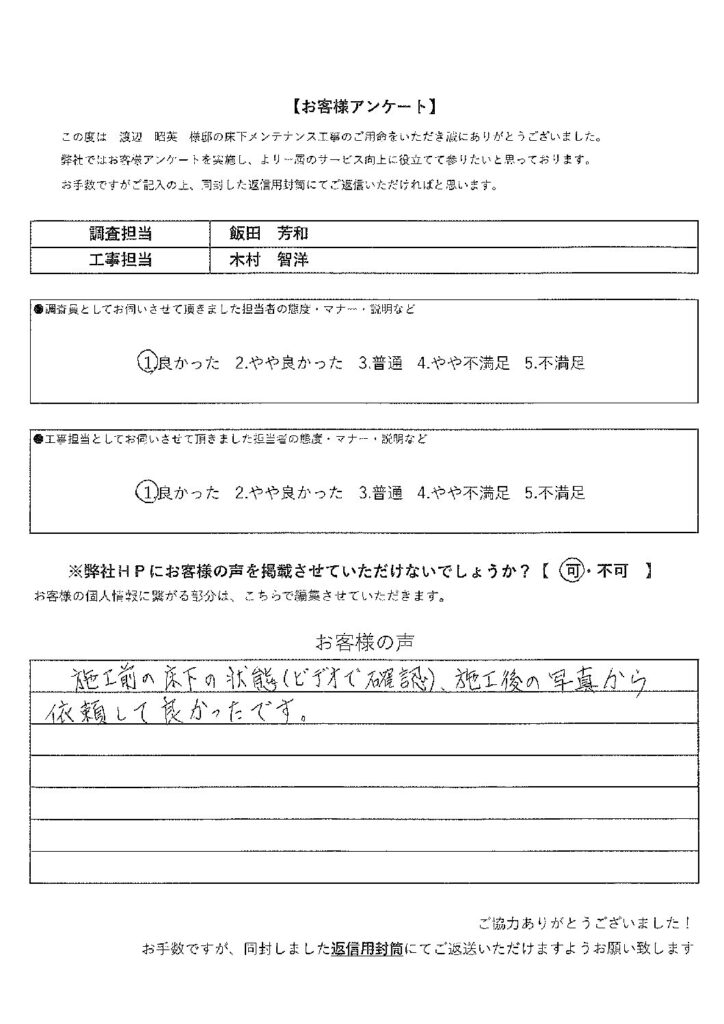 【お客様アンケート】
この度は　渡辺　昭英　様邸の床下メンテナンス工事のご用命をいただき誠にありがとうございました。
弊社ではお客様アンケートを実施し、より一層のサービス向上に役立てて参りたいと思っております。
お手数ですがご記入の上、同封した返信用封筒にてご返信いただければと思います。
調査担当　飯田　芳和
工事担当　木村　智洋
●調査員としてお伺いさせて頂きました担当者の態度・マナー・説明など
1.良かった　2.やや良かった　3.普通　4.やや不満足　5.不満足
●工事担当としてお伺いさせて頂きました担当者の態度・マナー・説明など
1.良かった　2.やや良かった　3.普通　4.やや不満足　5.不満足
※弊社ＨＰにお客様の声を掲載させていただけないでしょうか？【　可・不可　】
お客様の個人情報に繋がる部分は、こちらで編集させていただきます。
お客様の声
施工前の床下の状態(ビデオで確認)、施工後の写真から
依頼して良かったです。
ご協力ありがとうございました！
お手数ですが、同封しました返信用封筒にてご返送いただけますようお願い致します